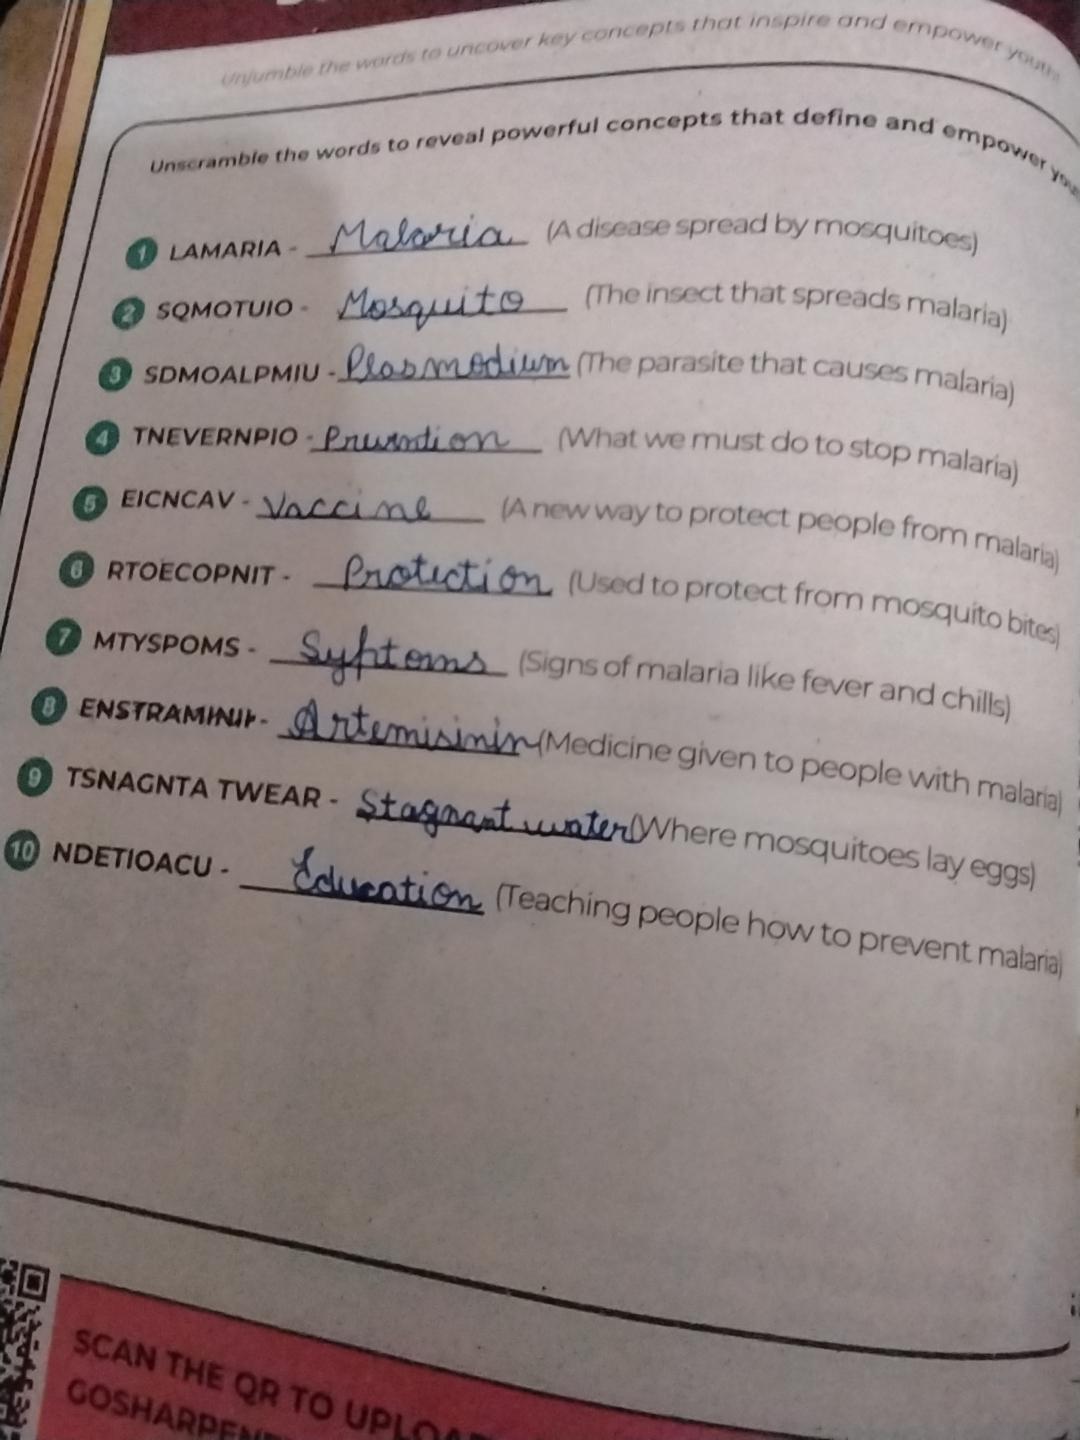 Unjumble the words to uncover key concepts that inspire and empower youth
Unscramble the words to reveal powerful concepts that define and empower
1 LAMARIA - Malaria (A disease spread by mosquitoes)
2 SQMOTUIO - Mosquito (The insect that spreads malaria)
3 SDMOALPMIU - Plasmodium (The parasite that causes malaria)
4 TNEVERNPIO - (What we must do to stop malaria)
5 EICNCAV - Vaccine (A new way to protect people from malaria)
6 RTOECOPNIT - Protection (Used to protect from mosquito bites)
7 MTYSPOMS - Syptoms (Signs of malaria like fever and chills)
8 - Artemisinin (Medicine given to people with malaria)
9 TSNAGNTA TWEAR - Stagnant water (Where mosquitoes lay eggs)
10 NDETIOACU - Education (Teaching people how to prevent malaria)
SCAN THE QR TO